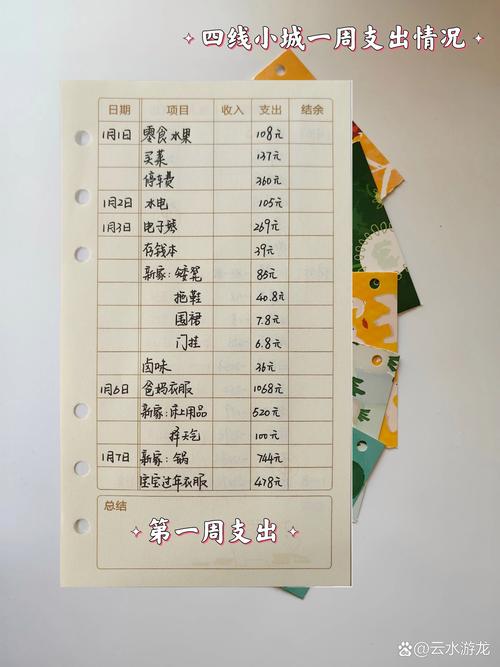 四线小城一周支出情况
日期 项目 收入 支出 结余
1月1日 零食水果 108元
买菜 137元
停车费 360元
1月2日 水电 105元
1月3日 电子琴 269元
存钱本 39元
新家:矮凳 85元
拖鞋 40.8元
围裙 7.8元
门挂 6.8元
卤味 36元
1月6日 爸妈衣服 1068元
新家:床上用品 520元
择天气 100元
1月7日 新家:锅 744元
宝宝过年衣服 478元
总结
第一周支出
云水游龙